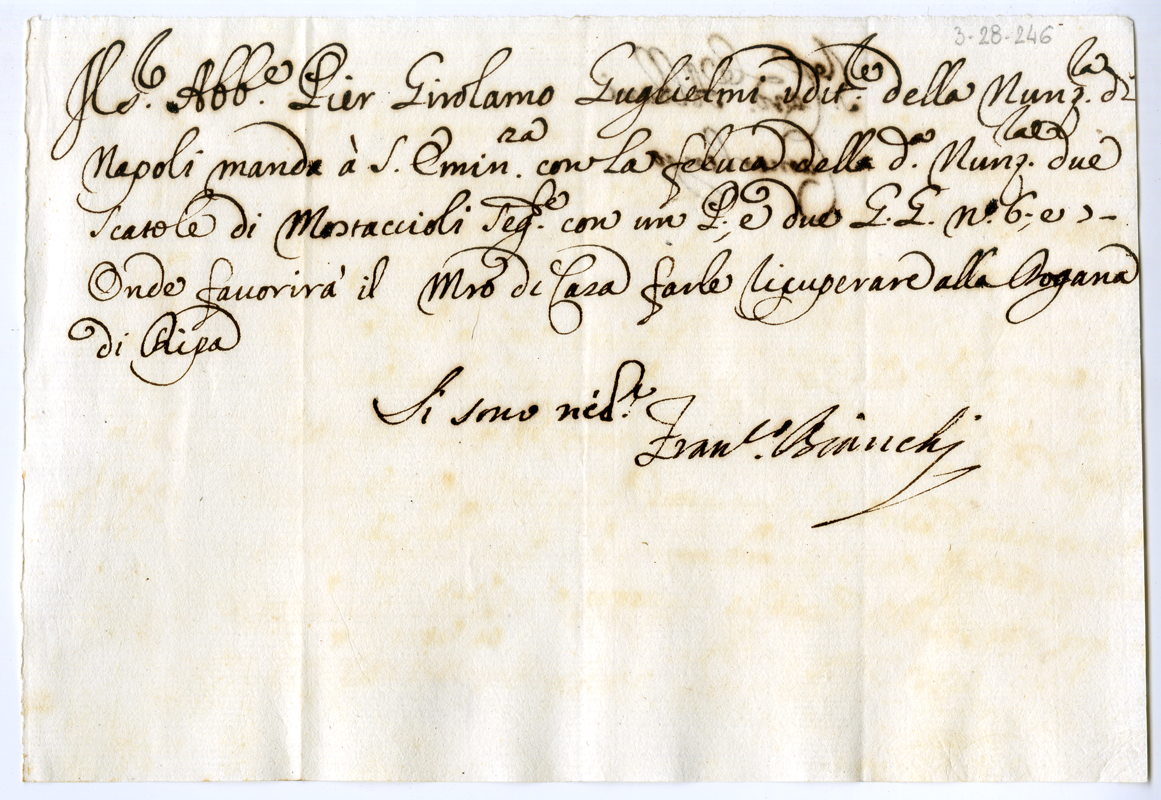 3-28-246
Il S.r Abb.e Pier Girolamo Guglielmi Udit.re della Nunz.ra di
Napoli manda à S. Emin.za con la feluca della d.a Nunz.ra due
Scatole di Mostaccioli Seg.te con un P., e due G.G. n.o 6., e 7
Onde favorirà il Mro di Casa farle ricuperare alla Dogana
di Ripa
Fran.co Bianchi